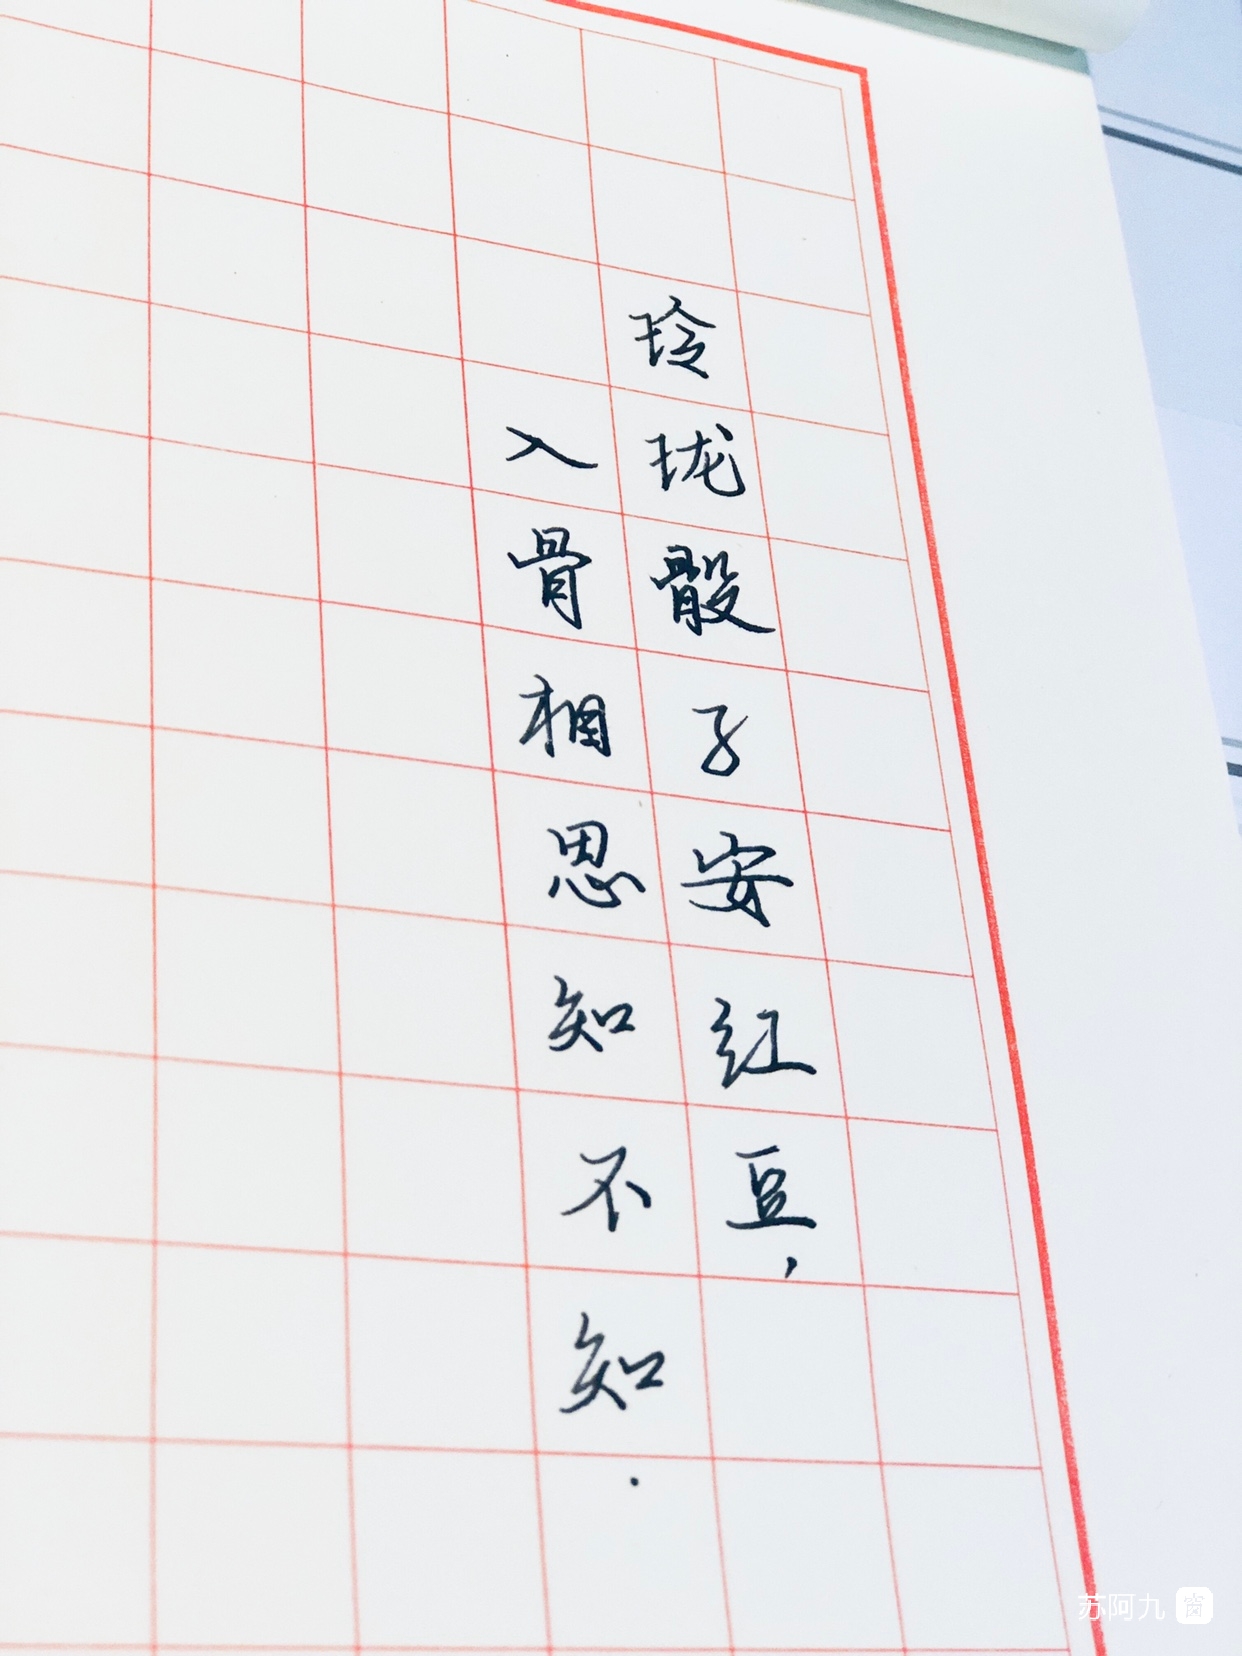 玲珑骰子安红豆，
入骨相思知不知.
苏阿九